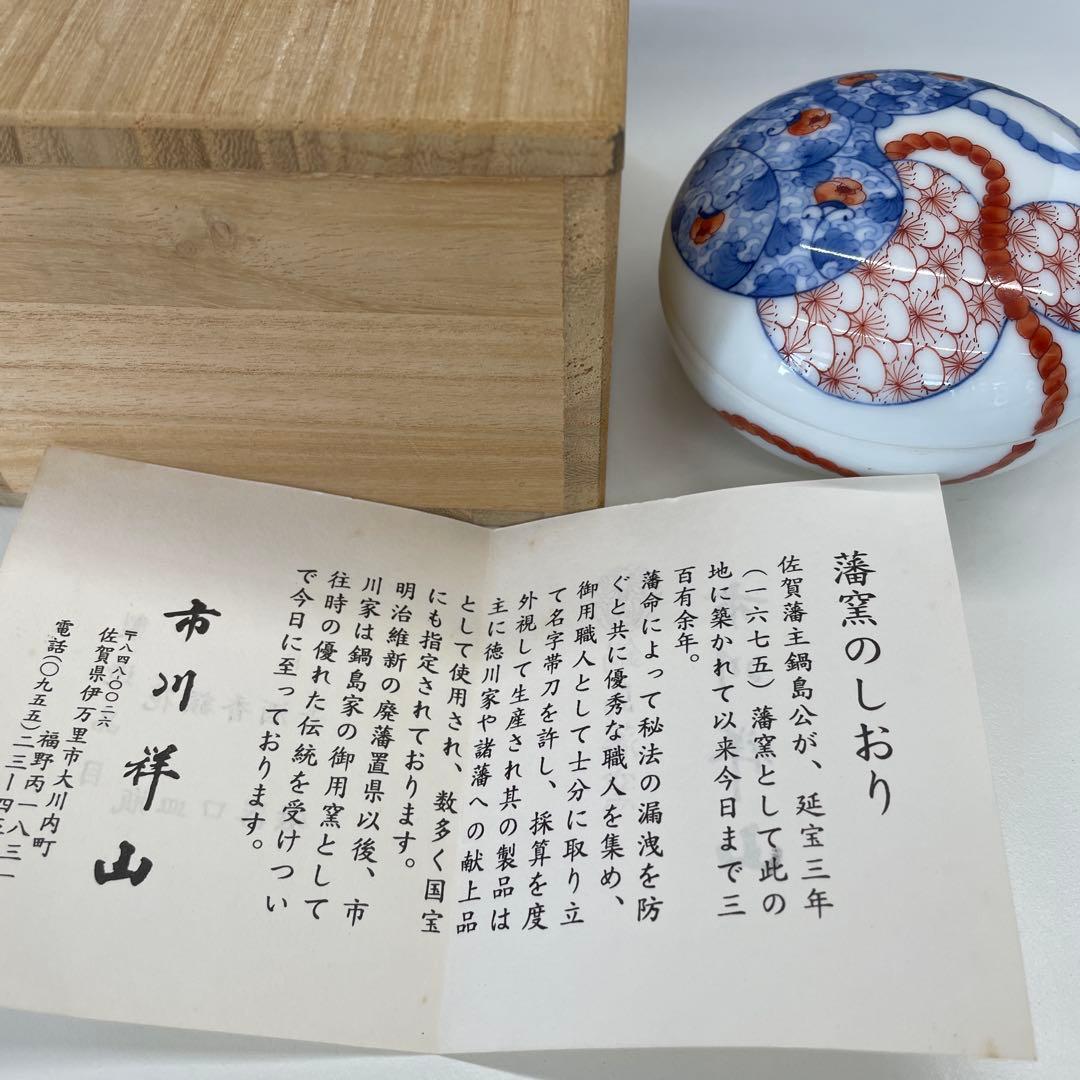 藩窯のしおり
佐賀藩主鍋島公が、延宝三年
(一六七五)藩窯として此の
地に築かれて以来今日まで三
百有余年。
藩命によって秘法の漏洩を防
ぐと共に優秀な職人を集め、
御用職人として士分に取り立
て名字帯刀を許し、採算を度
外視して生産され其の製品は
主に徳川家や諸藩への献上品
として使用され、数多く国宝
にも指定されております。
明治維新の廃藩置県以後、市
川家は鍋島家の御用窯として
往時の優れた伝統を受けつい
で今日に至っております。
市川祥山
〒八四八-〇〇二六
佐賀県伊万里市大川内町
福野丙一八三一
電話(〇九五五)二三-四三